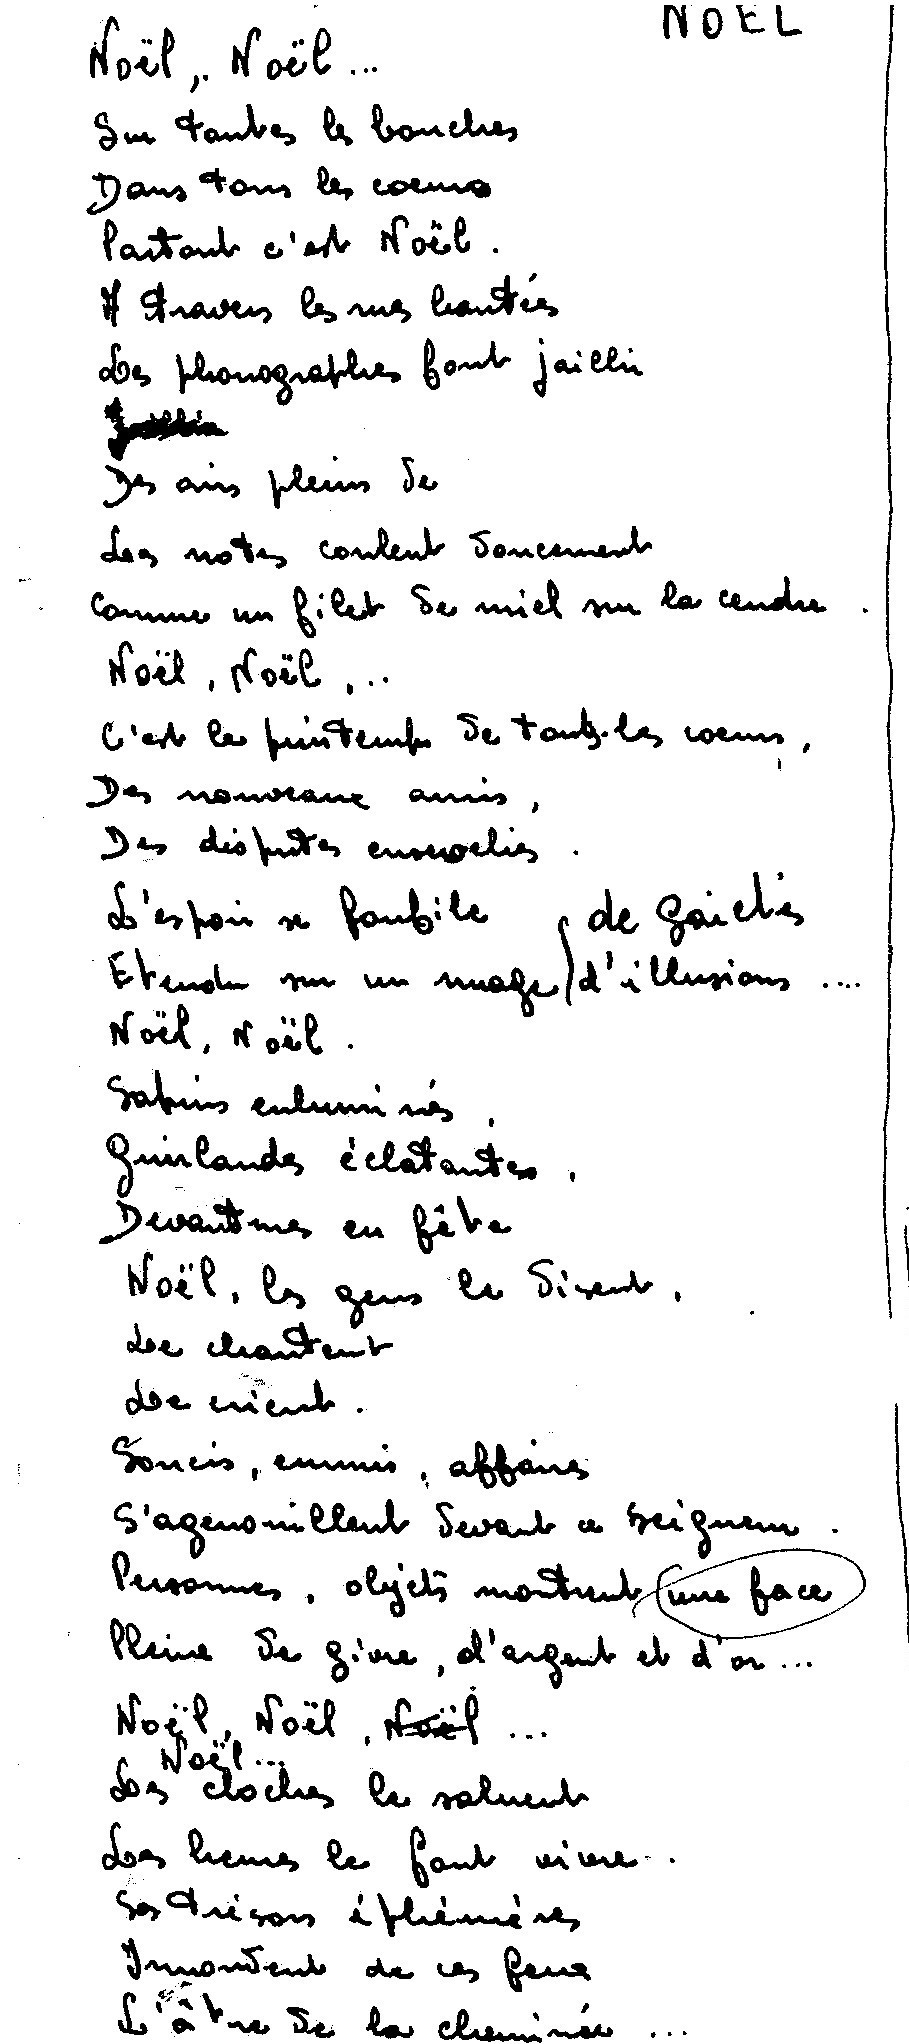 NOËL
Noël, Noël...
Sur toutes les bouches
Dans tous les coeurs
Partout c'est Noël.
A travers les rues hantées
Les phonographes font jaillir
Jaillir
Des airs pleins de
Les notes coulent doucement
Comme un filet de miel sur la cendre.
Noël, Noël,..
C'est le printemps de tous les coeurs,
Des nouveaux amis,
Des disputes ensevelies.
L'espoir se faufile de gaietés
Etendu sur un nuage d'illusions....
Noël, Noël.
Sapins enluminés,
Guirlandes éclatantes,
Devantures en fête
Noël, les gens le disent,
Le chantent
Le crient.
Soucis, ennuis, affaires
S'agenouillent devant ce seigneur.
Personnes, objets montrent une face
Pleine de givre, d'argent et d'or...
Noël, Noël, Noël...
Noël...
Les cloches le saluent
Les heures le font vivre..
Ses trésors éphémères
Inondent de ces feux
L'âtre de la cheminée...